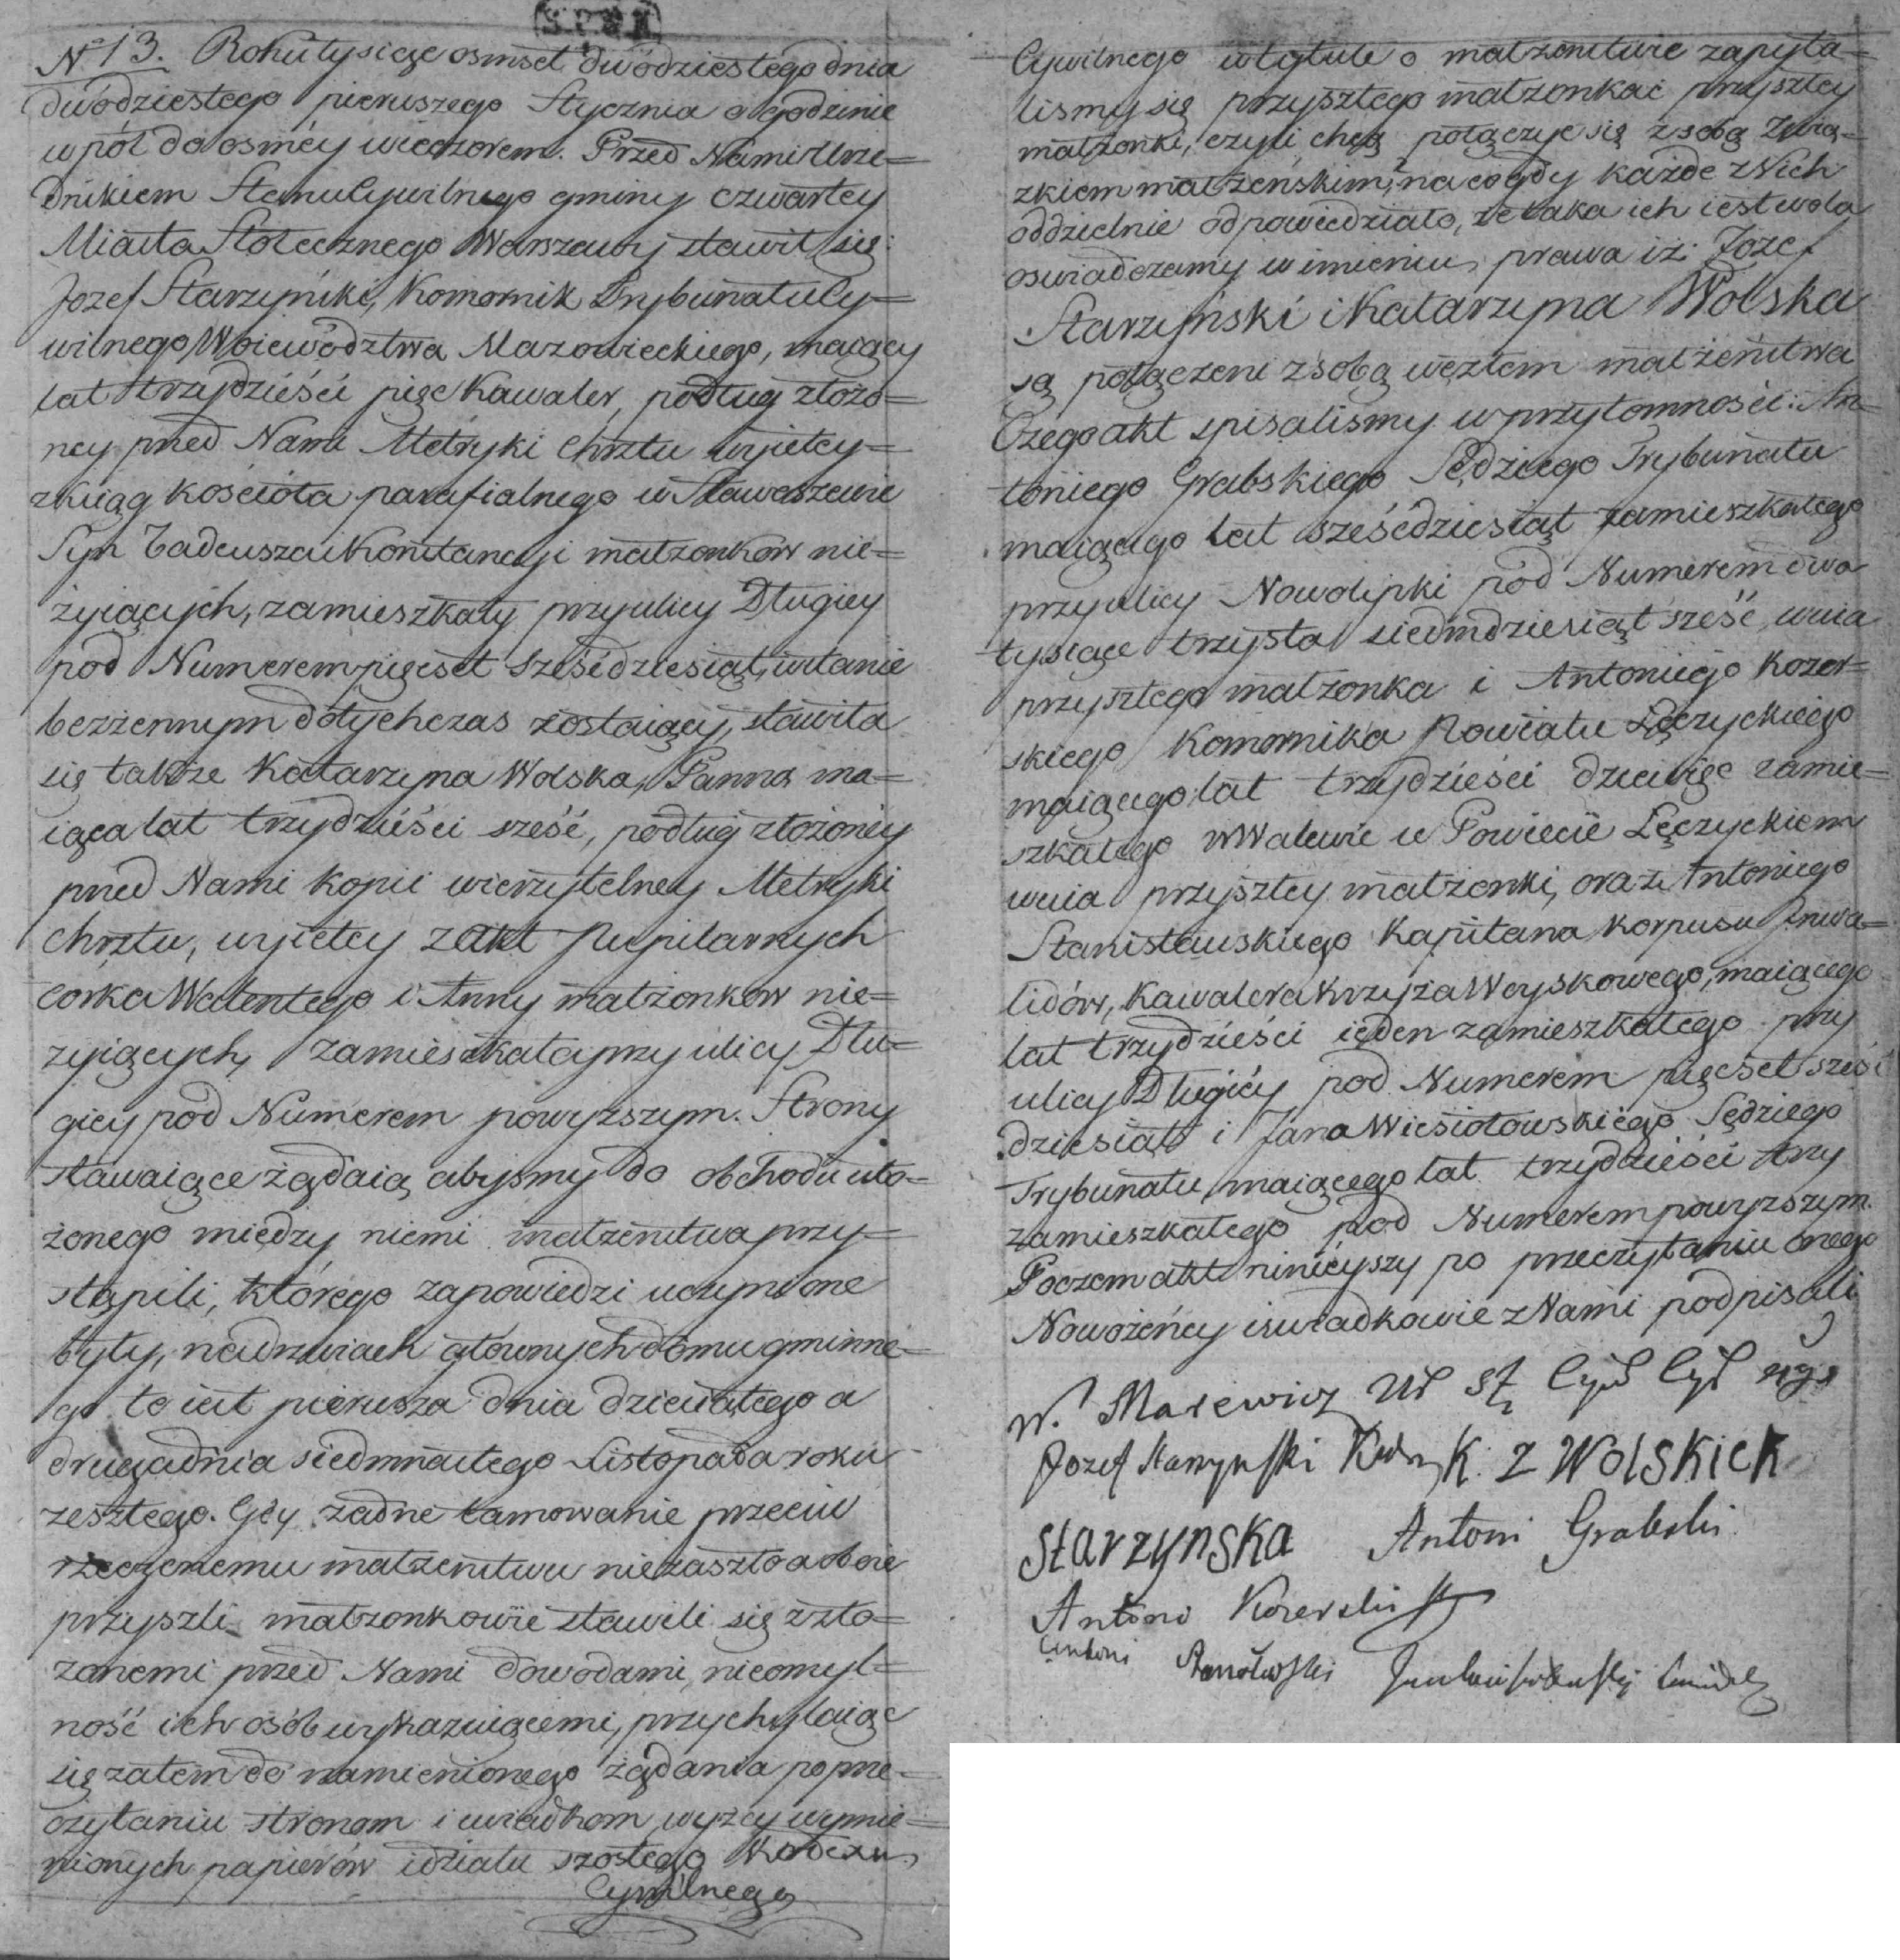 N 13. Roku tysiącze osmset dwódziestego dnia
dwódziestego pierwszego Stycznia o godzinie
wpół do osméy wieczorem. Przed Nami Urzę=
dnikiem Stanu Cywilnego gminy czwartey
Miasta Stołecznego Warszawy stawił się:
Jozef Starzyński, Komornik Trybunału Cy=
wilnego Woiewództwa Mazowieckiego, maiący
lat trzydzieści pięć Kawaler, podług złożo=
ney przed Nami Metryki Chrztu wyiętey=
z ksiąg kościoła parafialnego w
Syn Tadeusza i Konstancyi małzonków nie=
żyiących, zamieszkały przy ulicy Długiey
pod Numerem pięcset sześćdziesiąt, w stanie
bezżennym dotychczas zostaiący, stawiła
się także Katarzyna Wolska, Panna ma=
iąca lat trzydzieści sześć, podług złożonéy
przed Nami kopii wierzytelney Metryki
Chrztu, wyiętey z akt Pupilarnych
corka Walentego i Anny małżonków nie=
zyiących, zamieszkała przy ulicy Dłu=
giey pod Numerem powyzszym. Strony
stawaiące żądaią abyśmy do obchodu uło=
żonego między niemi małzeństwa przy=
stąpili, którego zapowiedzi uczynione
były, na drzwiach głównych domu gminne=
go to iest pierwsza dnia dziewiątego a
druga dnia siedmnastego Listopada roku
zeszłego. Gdy żadne tamowanie przeciw
rzeczonemu małzeństwu nie zaszło a oboie
przyszli małzonkowie stawili się z zło=
zonemi przed Nami dowodami, nieomyl=
ność ich osób wykazuiącemi, przychylaiąc
się zatem do namienionego żądania po prze=
czytaniu stronom i swiadkom wyzey wymie=
nionych papierów i działu szóstego Kodexu
Cywilnego
Cywilnego w tytule o małzeństwie zapyta=
lismy się przyszłego małzonka i przyszłey
małzonki, czyli chcą połączyć się z sobą Zwią=
zkiem małżeńskim, na co gdy każde z Nich
oddzielnie odpowiedziało, że taka ich iest wola
oswiadczamy w imieniu prawa iż: Jozef
Starzyński i Katarzyna Wolska
są połączeni z sobą węzłem małżeństwa
Czego akt spisalismy w przytomności: An=
toniego Grabskiego Sędziego Trybunału
maiącego lat sześćdziesiąt zamieszkałego
przy ulicy Nowolipki pod Numerem dwa
tysiące trzysta siedmdziesiąt sześć, wuia
przyszłego małzonka i Antoniego Kozer=
skiego Komornika Powiatu Łęczyckiego
maiącego lat trzydzieści dziewięć zamie=
szkałego w Walewie w Powiecie Łęczyckiem
wuia przyszłey małżonki, oraz Antoniego
Stanisławskiego Kapitana Korpusu Inwa=
lidów, Kawalera Krzyża Woyskowego, maiącego
lat trzydzieści ieden zamieszkałego przy
ulicy Długiéy pod Numerem pięcset sześć
dziesiąt i Jana Wiesiołowskiego Sędziego
Trybunału, maiącego lat trzydzieści trzy
zamieszkałego pod Numerem powyzszym.
Poczem akt ninieyszy po przeczytaniu onego
Nowożeńcy i swiadkowie z Nami podpisali
W. Marewicz Ur St Cyw
Jozef Starzynski K. z Wolskich
Starzynska Antoni Grabski
Antoni Kozerski
Antoni